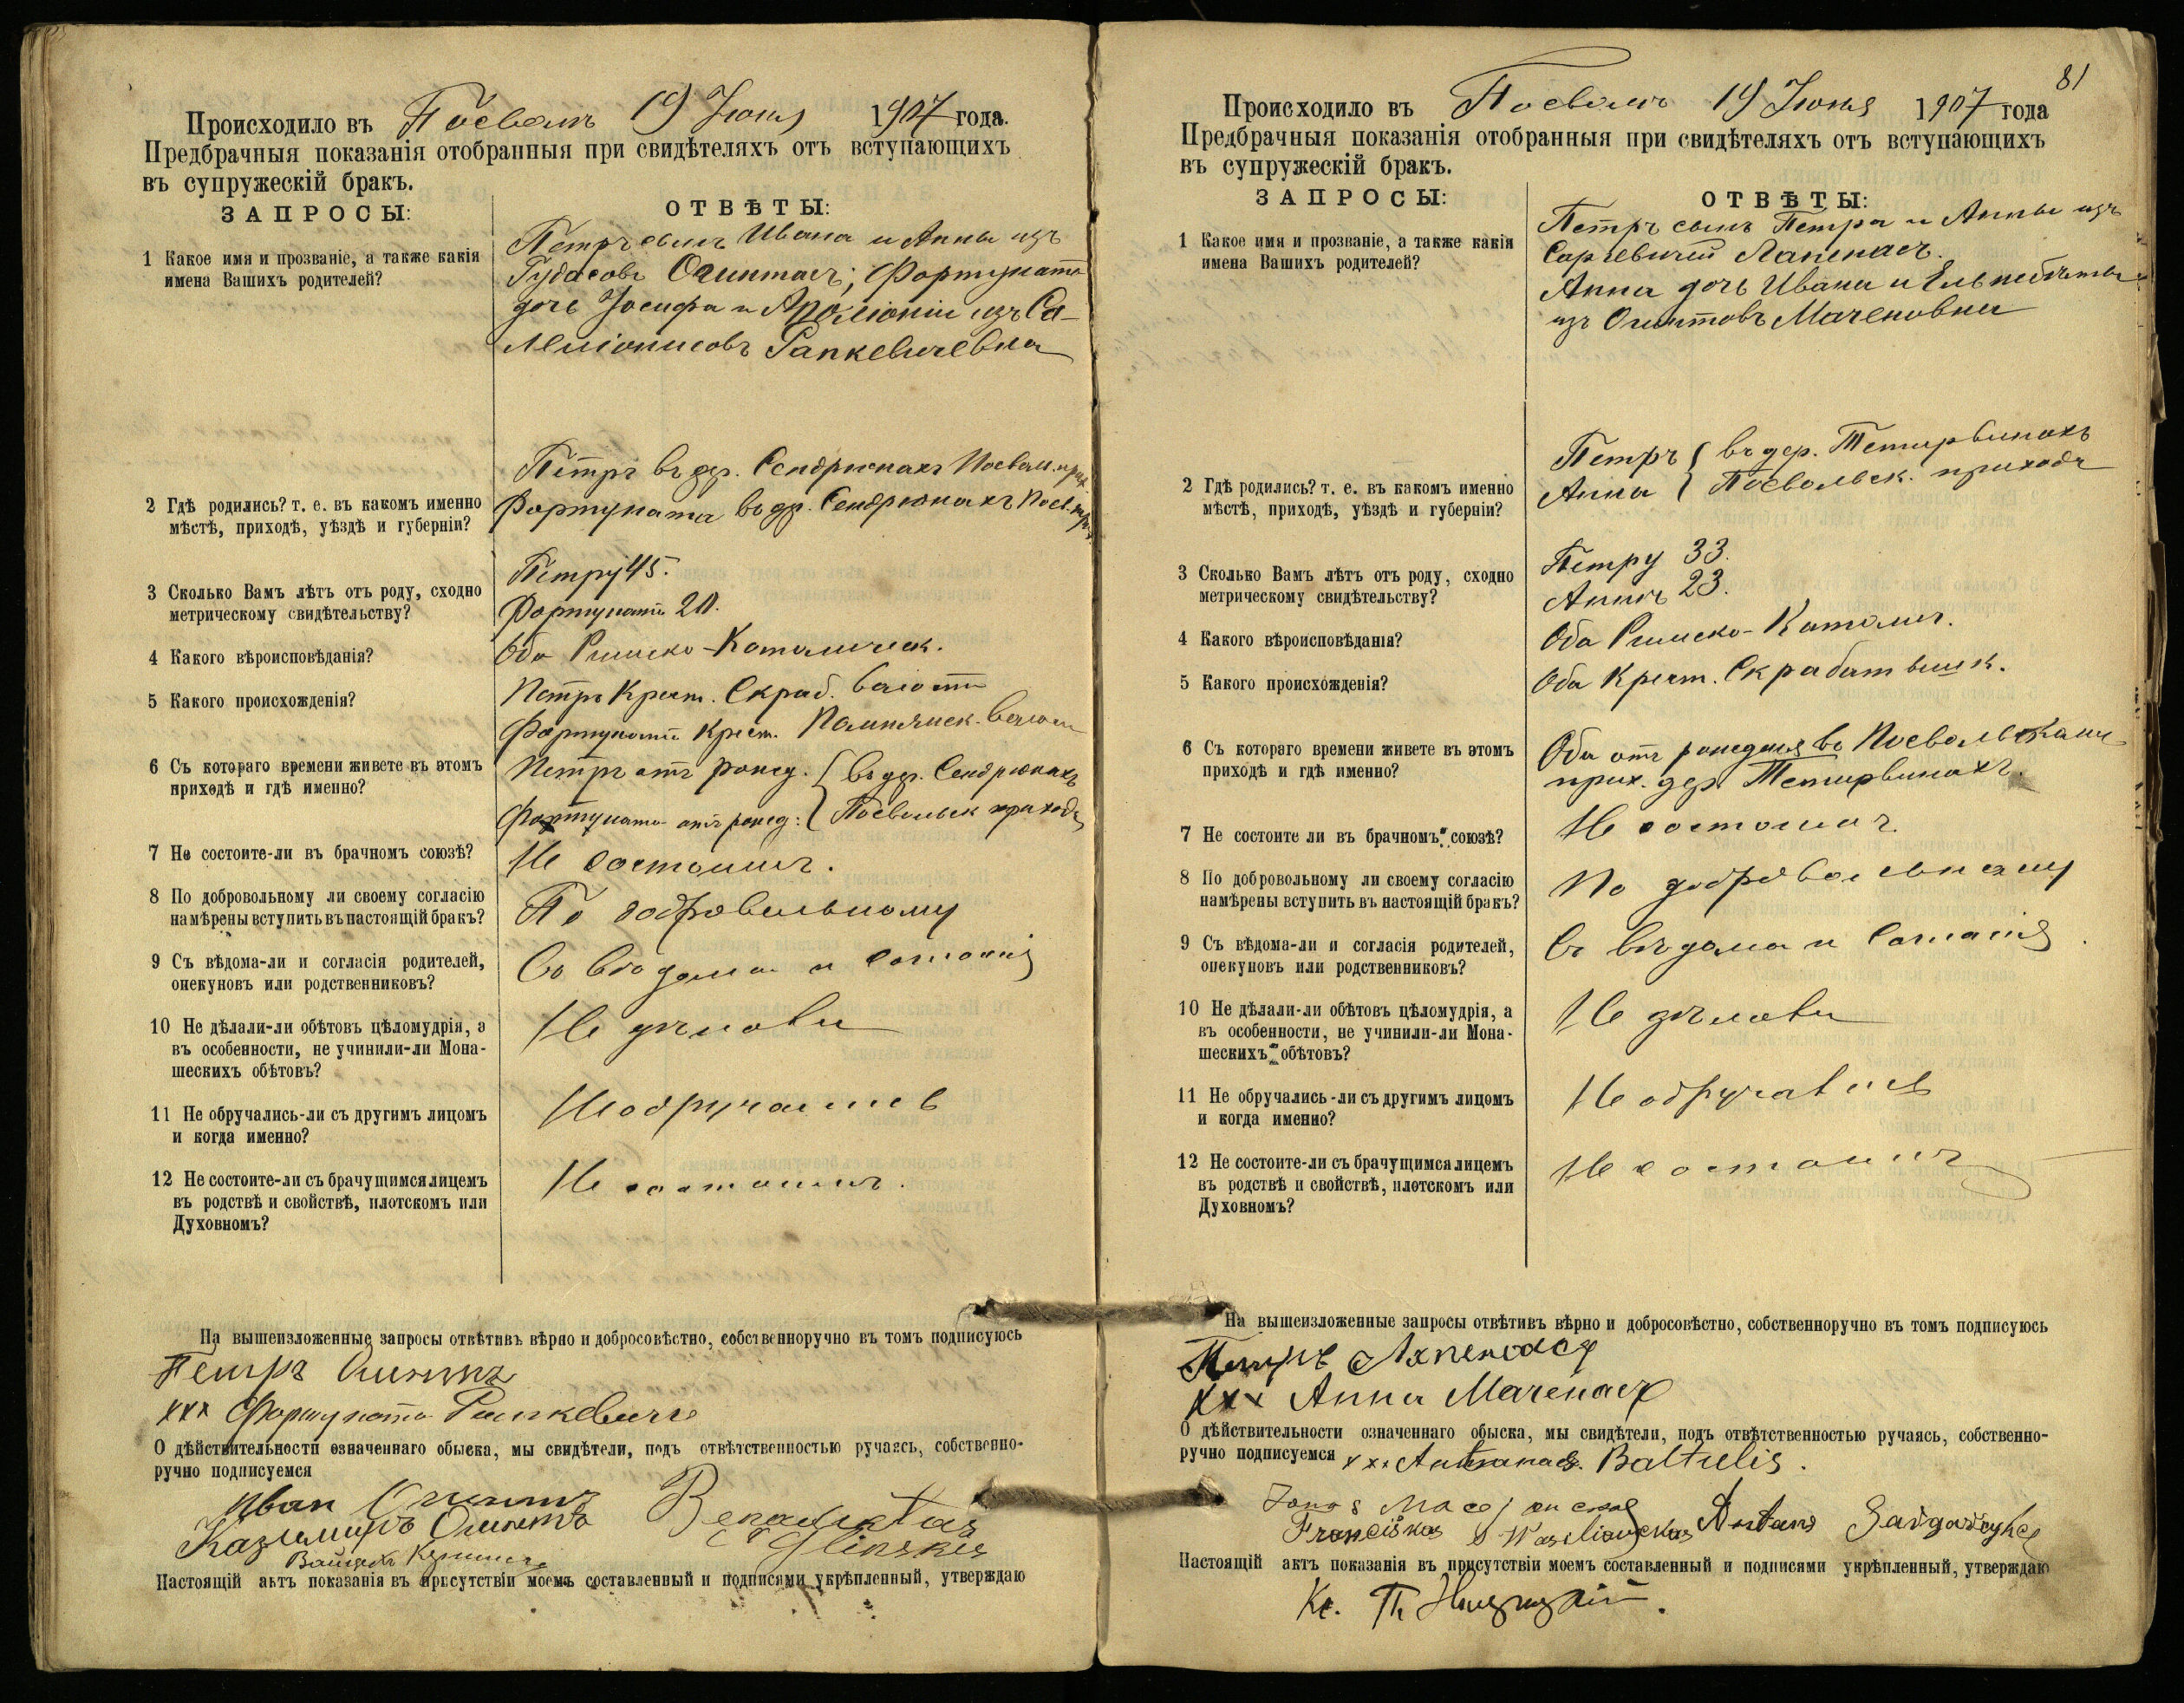 Происходило въ Посволѣ 19 Іюня 1907 года.
Предбрачныя показанія отобранныя при свидѣтеляхъ отъ вступающихъ
въ супружескій бракъ.
ЗАПРОСЫ:
ОТВѢТЫ:
1 Какое имя и прозваніе, а также какія
имена Вашихъ родителей?
Петръ сынъ Ивана и Анны изъ
Гудасовъ Огинтасъ; Фортуната
дочь Іосифа и Аполіоніи изъ Са-
Рапкевичевна
2 Гдѣ родились? т. е. въ какомъ именно
мѣстѣ, приходѣ, уѣздѣ и губерніи?
Петръ въ дер. Сендрюнахъ Посвол. прих.
Фортуната въ др. Сендрюнахъ Посв. пр.
3 Сколько Вамъ лѣтъ отъ роду, сходно
метрическому свидѣтельству?
Петру 45.
Фортунатѣ 20.
4 Какого вѣроисповѣданія?
Оба Римско-Католическ.
5 Какого происхожденія?
Петръ Крест. Скраб. волости
Фортуната Крест. волости
6 Съ котораго времени живете въ этомъ
приходѣ и гдѣ именно?
Петръ отъ рожд. въ др. Сендрюнахъ
Фортуната отъ рожд. Посвольск прихода
7 Не состоите-ли въ брачномъ союзѣ?
Не состоимъ.
8 По добровольному ли своему согласію
намѣрены вступить въ настоящій бракъ?
По добровольному
9 Съ вѣдома-ли и согласія родителей,
опекуновъ или родственниковъ?
Съ вѣдома и согласія
10 Не дѣлали-ли обѣтовъ цѣломудрія, а
въ особенности, не учинили-ли Мона-
шескихъ обѣтовъ?
Не дѣлали
11 Не обручались-ли съ другимъ лицомъ
и когда именно?
Не обручались
12 Не состоите-ли съ брачущимся лицемъ
въ родствѣ и свойствѣ, плотскомъ или
Духовномъ?
Не состоимъ.
На вышеизложенные запросы отвѣтивъ вѣрно и добросовѣстно, собственноручно въ томъ подписуюсь
Петръ Огинтъ
xxx Фортуната Рапкевичъ
О дѣйствительности означеннаго обыска, мы свидѣтели, подъ отвѣтственностью ручаясь, собственно-
ручно подписуемся
Иван Огинтъ
Казимиръ Огинтъ
Benadiktas
Glinskis
Настоящій актъ показанія въ присутствіи моемъ составленный и подписями укрѣпленный, утверждаю
81
Происходило въ Посволѣ 19 Іюня 1907 года
Предбрачныя показанія отобранныя при свидѣтеляхъ отъ вступающихъ
въ супружескій бракъ.
ЗАПРОСЫ:
ОТВѢТЫ:
1 Какое имя и прозваніе, а также какія
имена Вашихъ родителей?
Петръ сынъ Петра и Анны изъ
Лапенасъ.
Анна дочь Ивана и Ельжбѣты
изъ Огинтовъ Маченовна
2 Гдѣ родились? т. е. въ какомъ именно
мѣстѣ, приходѣ, уѣздѣ и губерніи?
Петръ въ дер. Тетирвинахъ
Анна Посвольск. прихода
3 Сколько Вамъ лѣтъ отъ роду, сходно
метрическому свидѣтельству?
Петру 33.
Аннѣ 23.
4 Какого вѣроисповѣданія?
Оба Римско-Католич.
5 Какого происхожденія?
Оба Крест. Скрабатишк.
6 Съ котораго времени живете въ этомъ
приходѣ и гдѣ именно?
Оба отъ рожденія въ Посвольскомъ
прих. дер. Тетирвинахъ.
7 Не состоите ли въ брачномъ союзѣ?
Не состоимъ.
8 По добровольному ли своему согласію
намѣрены вступить въ настоящій бракъ?
По добровольному
9 Съ вѣдома-ли и согласія родителей,
опекуновъ или родственниковъ?
Съ вѣдома и согласія
10 Не дѣлали-ли обѣтовъ цѣломудрія, а
въ особенности, не учинили-ли Мона-
шескихъ обѣтовъ?
Не дѣлали
11 Не обручались-ли съ другимъ лицомъ
и когда именно?
Не обручались
12 Не состоите-ли съ брачущимся лицемъ
въ родствѣ и свойствѣ, плотскомъ или
Духовномъ?
Не состоимъ
На вышеизложенные запросы отвѣтивъ вѣрно и добросовѣстно, собственноручно въ томъ подписуюсь
Петръ Лапенасъ
xxx Анна Маченасъ
О дѣйствительности означеннаго обыска, мы свидѣтели, подъ отвѣтственностью ручаясь, собственно-
ручно подписуемся xxx Antanas. Baltrelis.
Jonas
Franciškas Antans
Настоящій актъ показанія въ присутствіи моемъ составленный и подписями укрѣпленный, утверждаю
Кс. П.